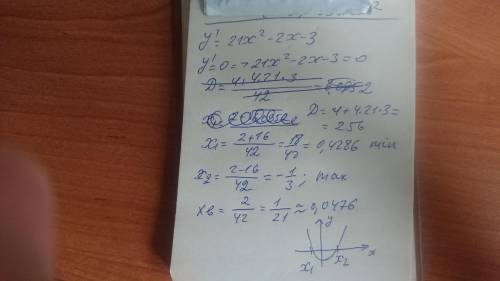 y' = 21x² - 2x - 3
y' = 0 => 21x² - 2x - 3 = 0
D = 4 + 4·21·3 =
= 256
x₁ = (2+16)/42 = 18/42 = 0,4286 min
x₂ = (2-16)/42 = -1/3; max
xв = 2/42 = 1/21 ≈ 0,0476
y
x₁ x₂ x